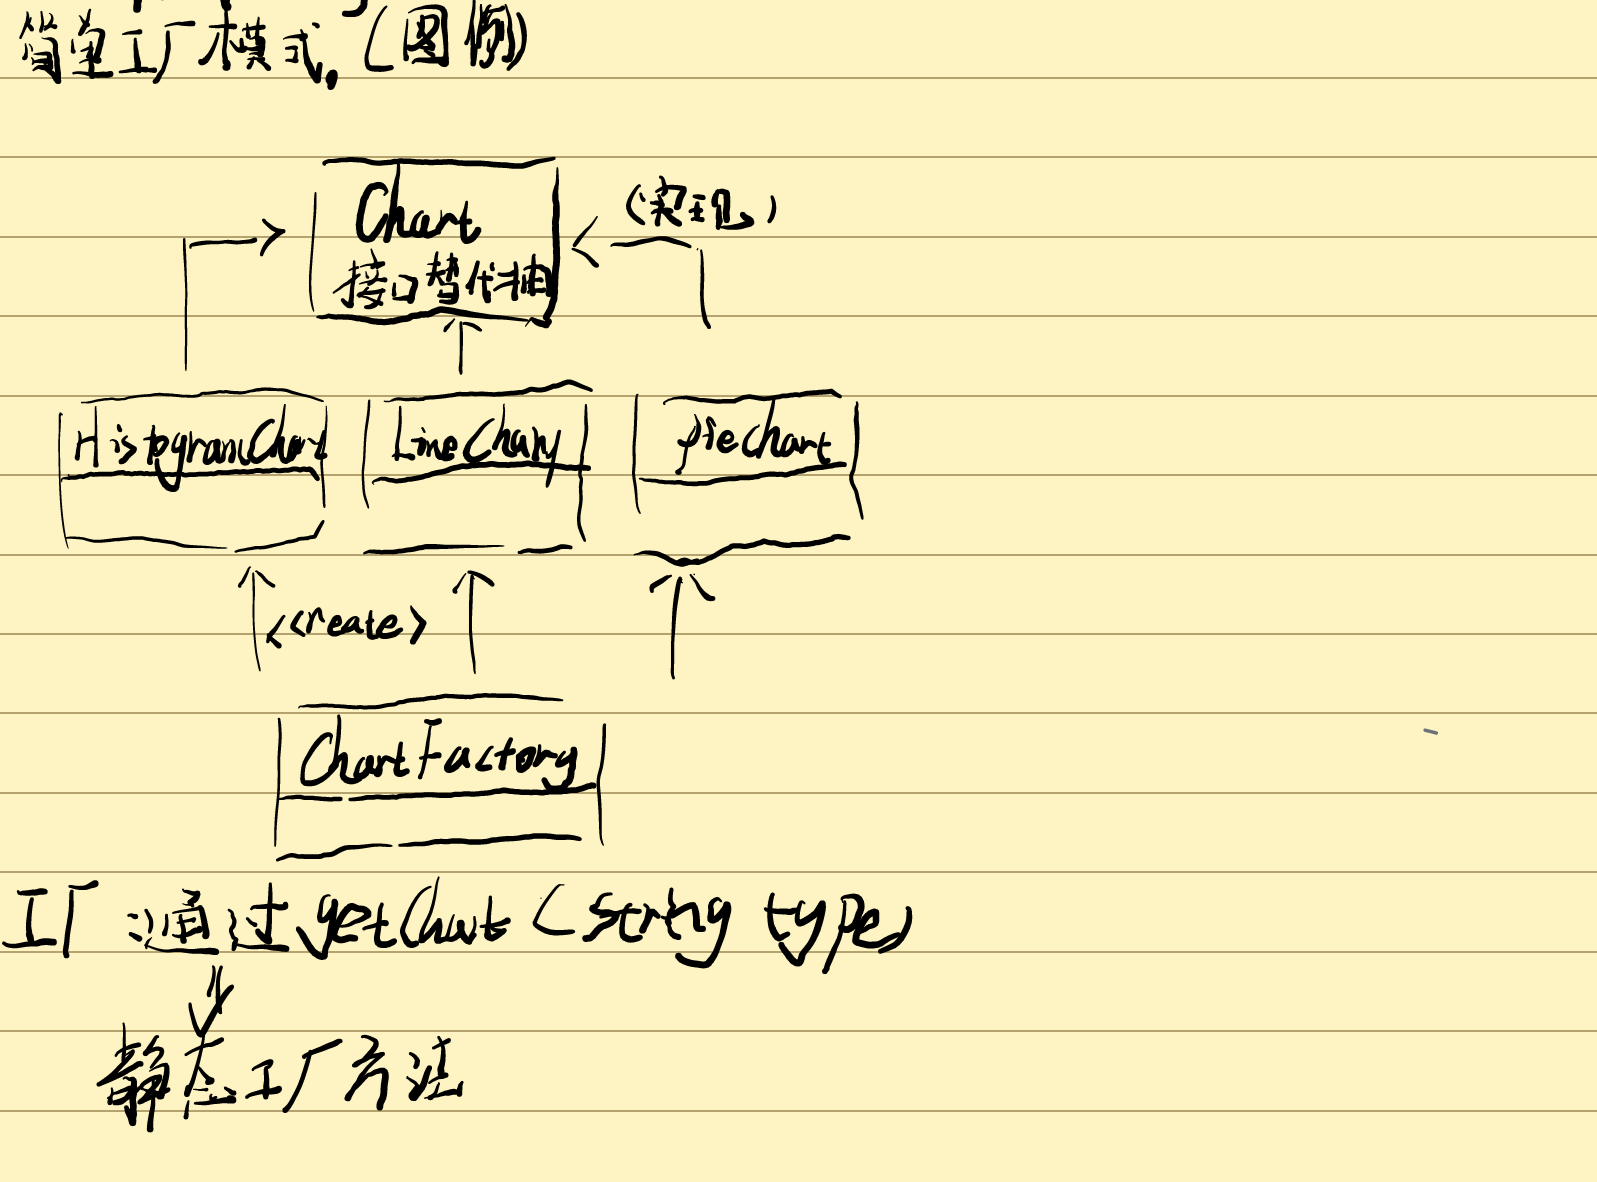 简单工厂模式。(图例)
Chart
(实现)
接口替代抽
HistogramChart
LineChart
pieChart
<<create>
ChartFactory
工厂 通过 getChart (string type)
静态工厂方法